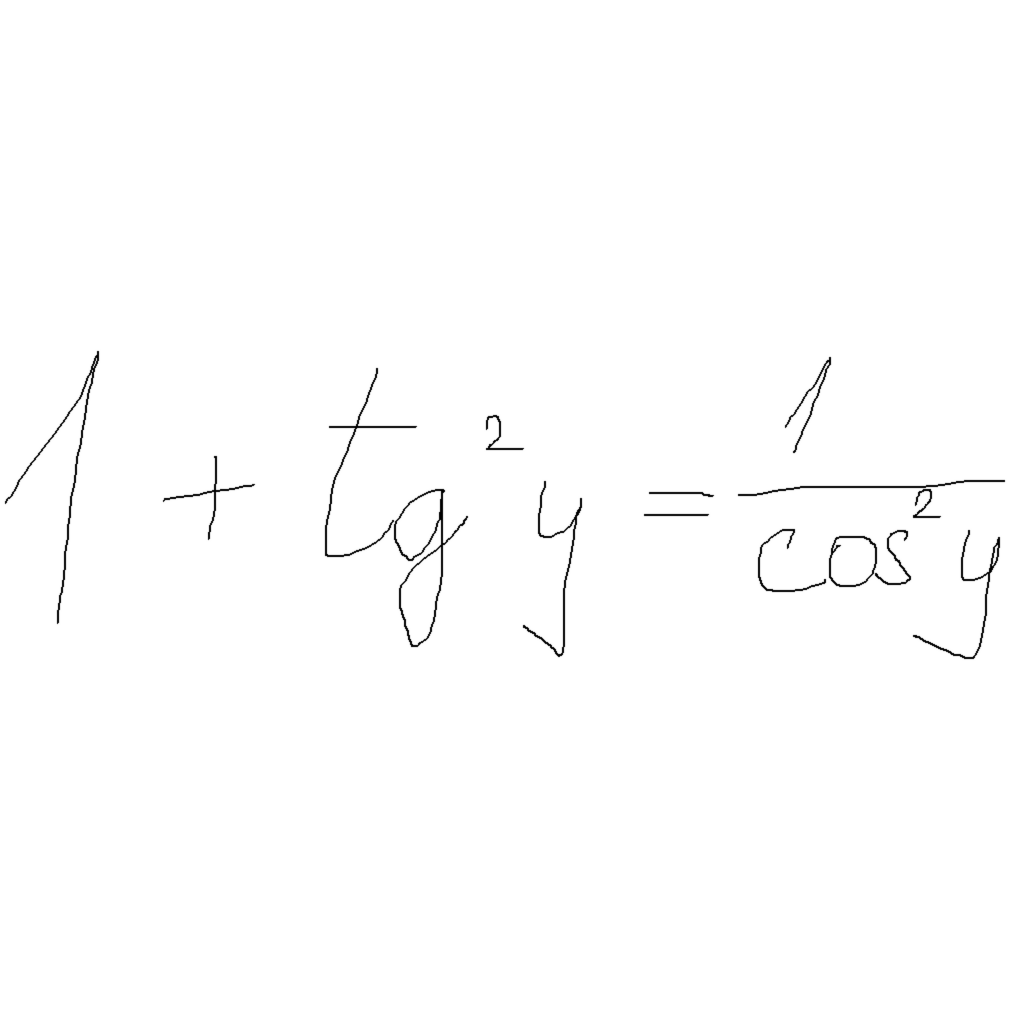 1 + tg²y = 1/cos²y